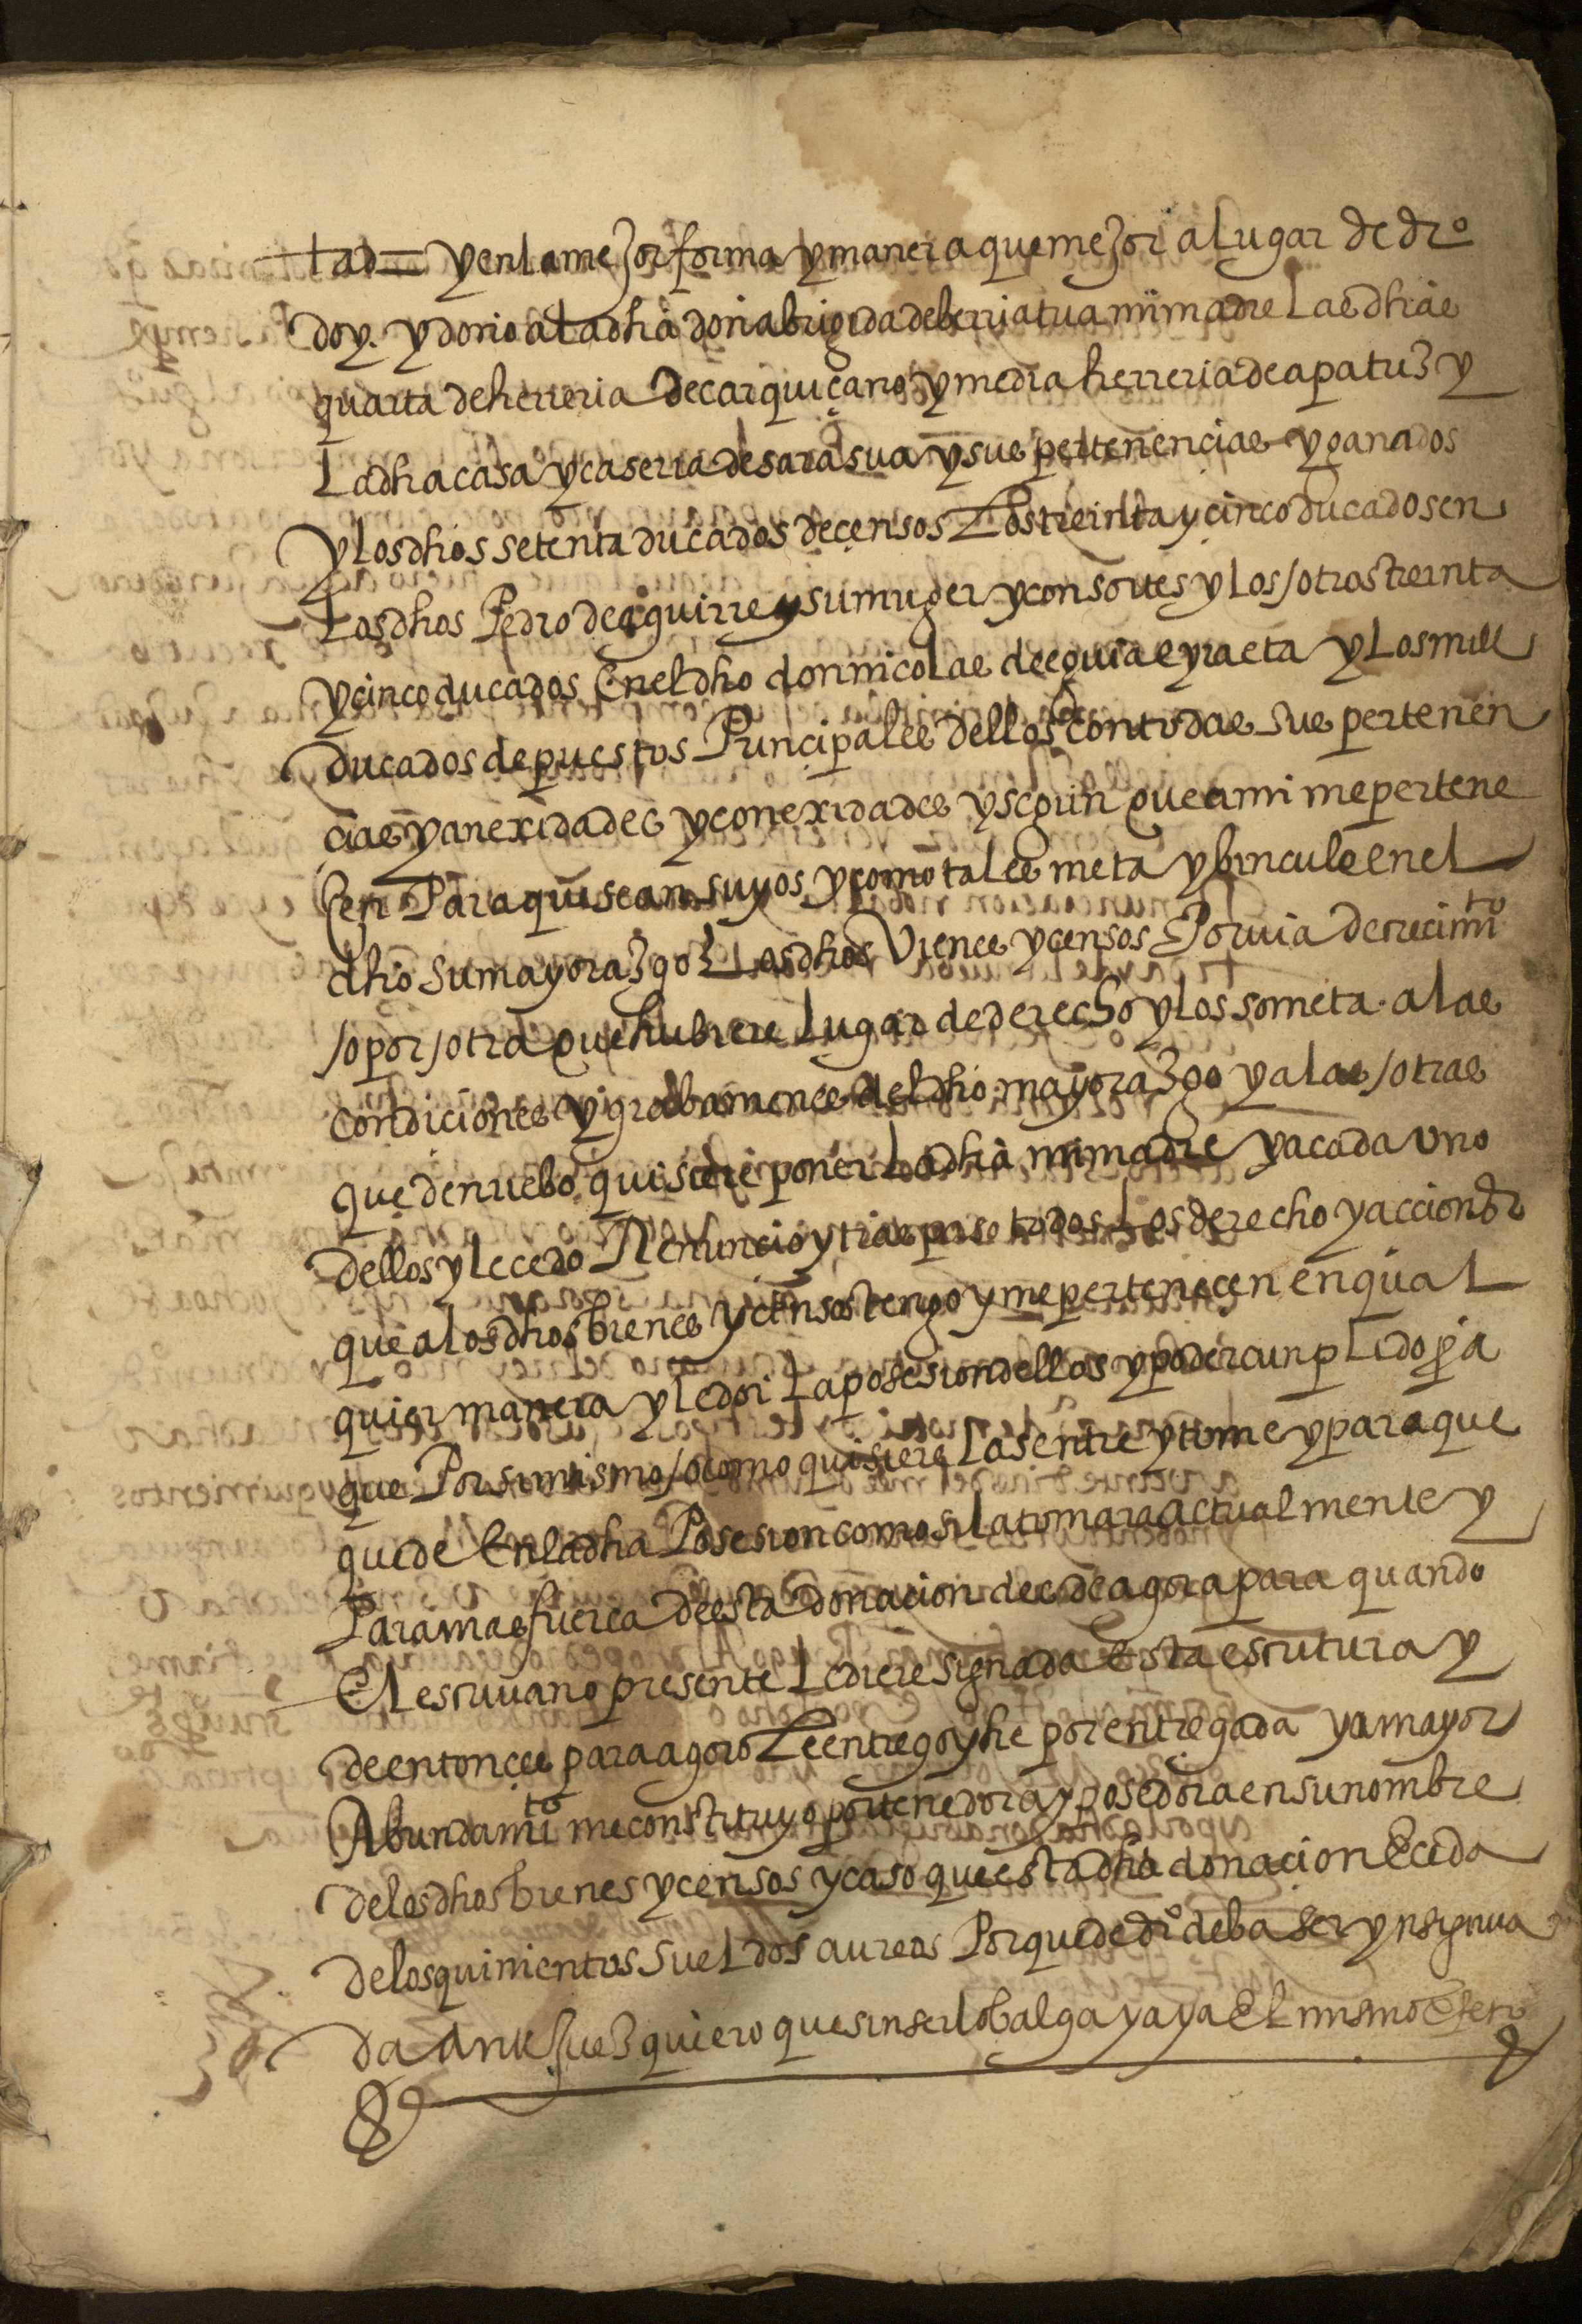 tad = y en la mejor forma y manera que mejor a lugar de dro
doy. y dono a la dha doña brigida de berriatua mi madre Las dhas
quarta de herreria de carquiçano y media herreria de apatuz y
La dha casa y caseria de sarasua y sus pertenencias y ganados
y los dhos setenta ducados de çensos Los treinta y cinco ducados en
Los dhos Pedro de aguirre y su muger y consortes y los otros treinta
y cinco ducados En el dho don nicolas de eguia e yraeta y Los mill
ducados de puestos Principales dellos Con todas sus pertenen
cias y anexidades y conexidades y segun que a mi me pertene
cen Para que sean suyos y como tales meta y bincule en el
dho su mayorazgo Los dhos Vienes y çensos Por via de recimto
o por otra que hubiere Lugar de derecho y Los someta a las
condiciones y grabamenes del dho mayorazgo y a las otras
que de nuebo quisiere poner La dha mi madre y a cada uno
dellos y le cedo Renuncio y traspaso todos Los derecho y accion dr
que a los dhos bienes y çensos tengo y me pertenecen en qual
quier manera y le doi La posesion dellos y poder cunplido pa
que Por si mismo o como quisiere La s entre y tome y para que
quede En la dha Posesion como si la tomara actualmente y
Para mas fuerça de esta donacion desde agora para quando
El escrivano presente Le diere signada esta escritura y
de entonces para agora Le entrego y he por entregada y a mayor
Abundamto me constituyo por tenedora y posedora en su nombre
de los dhos bienes y censos y caso que esta dha donacion Eceda
de los quinientos sueldos aureos Por que de dro deba ser ynsignua
da ante juez quiero que sin serlo balga y aya El mismo Efeto